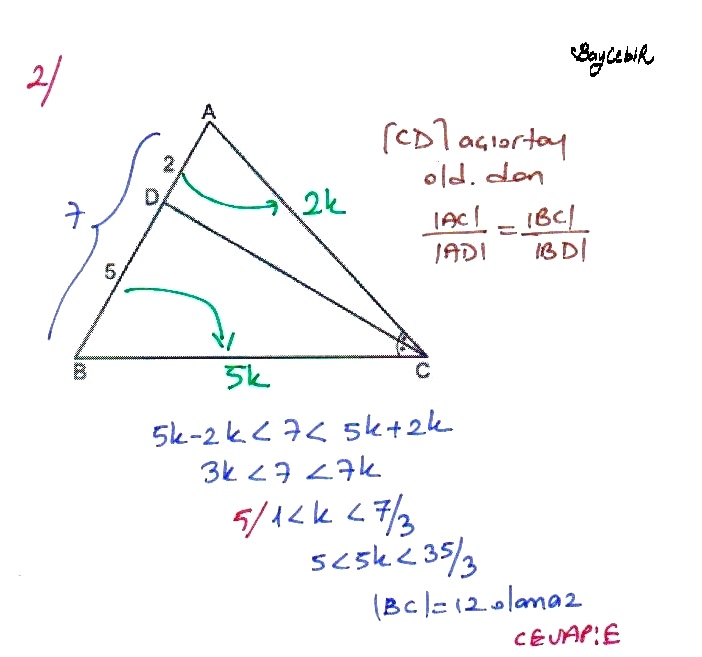 BayCebiR
2/
A
2
D
7
2k
5
B
5k
C
[CD] açıortay
old. dan
|AC| / |AD| = |BC| / |BD|
5k-2k < 7 < 5k+2k
3k < 7 < 7k
5/ 1 < k < 7/3
5 < 5k < 35/3
|BC| = 12 olamaz
CEVAP: E